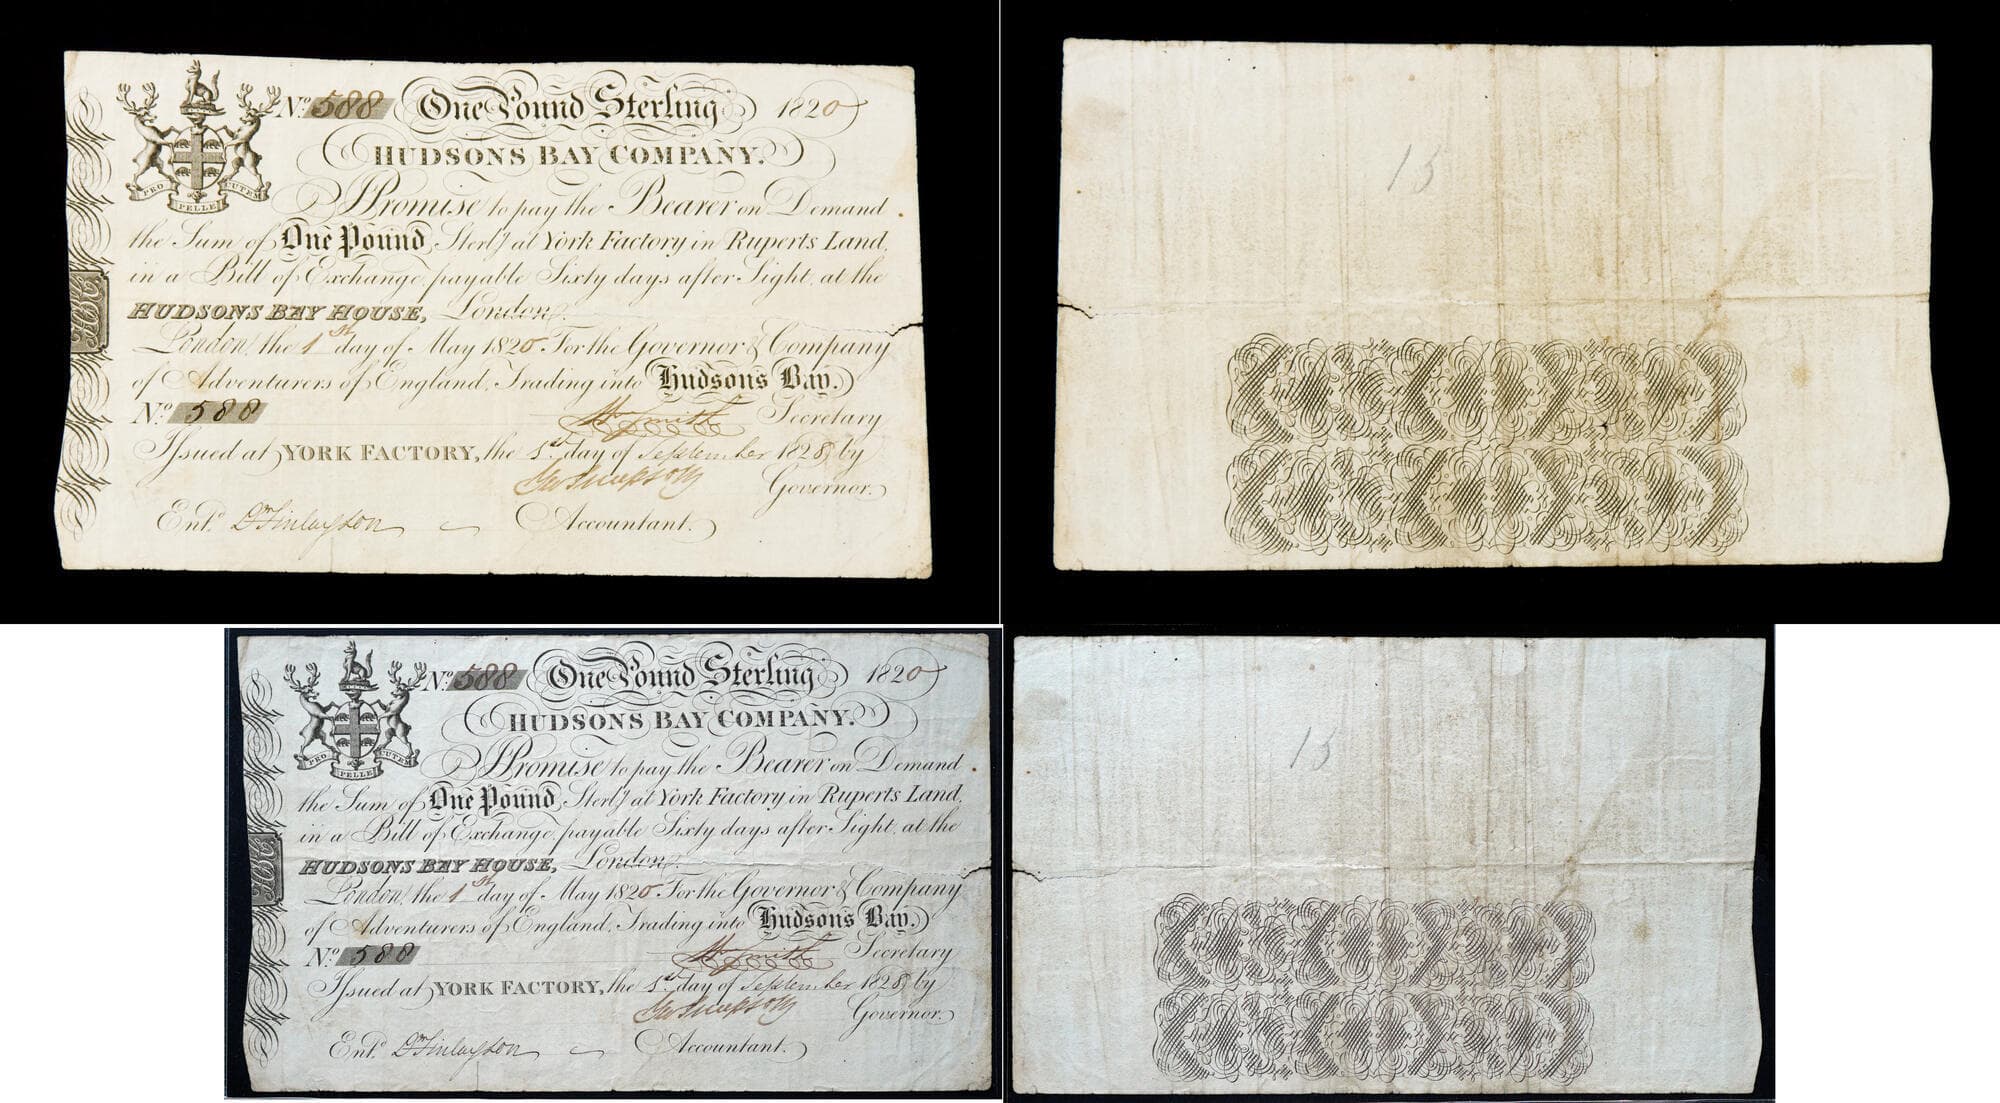 No. 588 One Pound Sterling 1820
HUDSONS BAY COMPANY.
PRO PELLE CUTEM
I Promise to pay the Bearer on Demand
the Sum of One Pound Sterl'g at York Factory in Ruperts Land,
in a Bill of Exchange payable Sixty days after Sight, at the
HUDSONS BAY HOUSE, London.
HBC
London, the 1st day of May 1820 For the Governor & Company
of Adventurers of England, Trading into Hudson's Bay.
No. 588 Wm Smith Secretary
Issued at YORK FACTORY, the 1st day of September 1828 by
Geo Simpson Governor.
Entd. Dn Finlayson Accountant.
15
No. 588 One Pound Sterling 1820
HUDSONS BAY COMPANY.
PRO PELLE CUTEM
I Promise to pay the Bearer on Demand
the Sum of One Pound Sterl'g at York Factory in Ruperts Land,
in a Bill of Exchange payable Sixty days after Sight, at the
HUDSONS BAY HOUSE, London.
HBC
London, the 1st day of May 1820 For the Governor & Company
of Adventurers of England, Trading into Hudson's Bay.
No. 588 Wm Smith Secretary
Issued at YORK FACTORY, the 1st day of September 1828 by
Geo Simpson Governor.
Entd. Dn Finlayson Accountant.
15